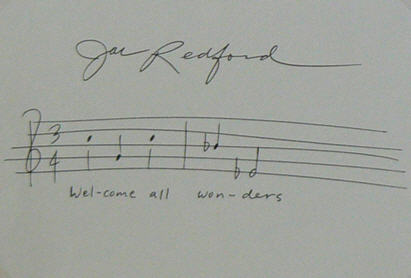 Joe Redford
3
4
Wel-come all won-ders